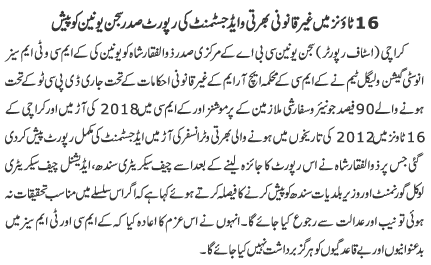 16 ٹاؤنز میں غیر قانونی بھرتی و ایڈجسٹمنٹ کی رپورٹ صدر سجن یونین کو پیش
کراچی (اسٹاف رپورٹر) سجن یونین سی بی اے کے مرکزی صدر ذوالفقار شاہ کو یونین کی کے ایم سی و ٹی ایم سیز
انوسٹی گیشن ولیگل ٹیم نے کے ایم سی کے محکمہ ایچ آر ایم کے غیر قانونی احکامات کے تحت جاری ڈی پی سی ٹو کے تحت
ہونے والے 90 فیصد جونیئر وسفارشی ملازمین کے پرموشنز اور کے ایم سی میں 2018 کی آڑ میں اور کراچی کے
16 ٹاونز میں 2012 کی تاریخوں میں ہونے والی بھرتی وٹرانسفر کی آڑ میں ایڈجسٹمنٹ کی مکمل رپورٹ پیش کر دی
گئی جس پر ذوالفقار شاہ نے اس رپورٹ کا جائزہ لینے کے بعد اسے چیف سیکریٹری سندھ، ایڈیشنل چیف سیکریٹری
لوکل گورنمنٹ اور وزیر بلدیات سندھ کو پیش کرنے کا فیصلہ کرتے ہوئے کہا ہے کہ اگر اس سلسلے میں مناسب تحقیقات نہ
ہوئی تو نیب اور عدالت سے رجوع کیا جائے گا۔ انہوں نے اس عزم کا اعادہ کیا کہ کے ایم سی اور ٹی ایم سیز میں
بدعنوانیوں اور بے قاعدگیوں کو ہرگز برداشت نہیں کیا جائے گا۔